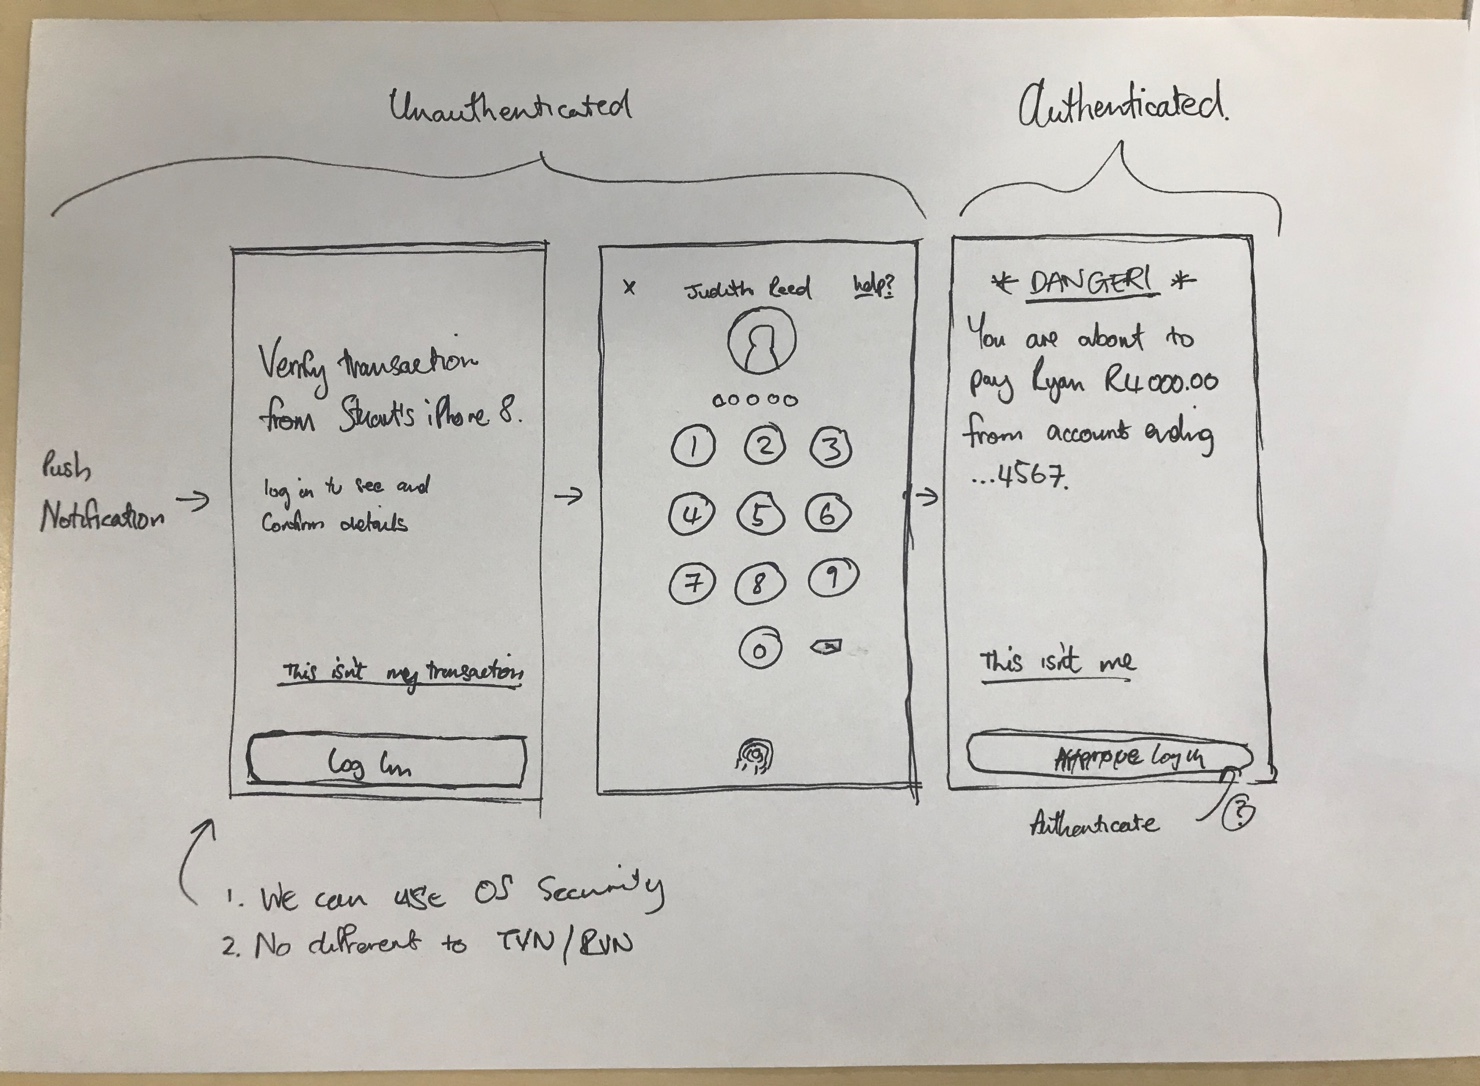 Unauthenticated
Authenticated.
Push
Notification
Verify transaction
from Stuart's iPhone 8.
log in to see and
Confirm details
This isn't my transaction
Log In
x Judith Reed help?
1 2 3
4 5 6
7 8 9
0 x
* DANGER! *
You are about to
pay Ryan R4000.00
from account ending
...4567.
This isn't me
Approve Log in
Authenticate ?
1. We can use OS Security
2. No different to TVN/RVN